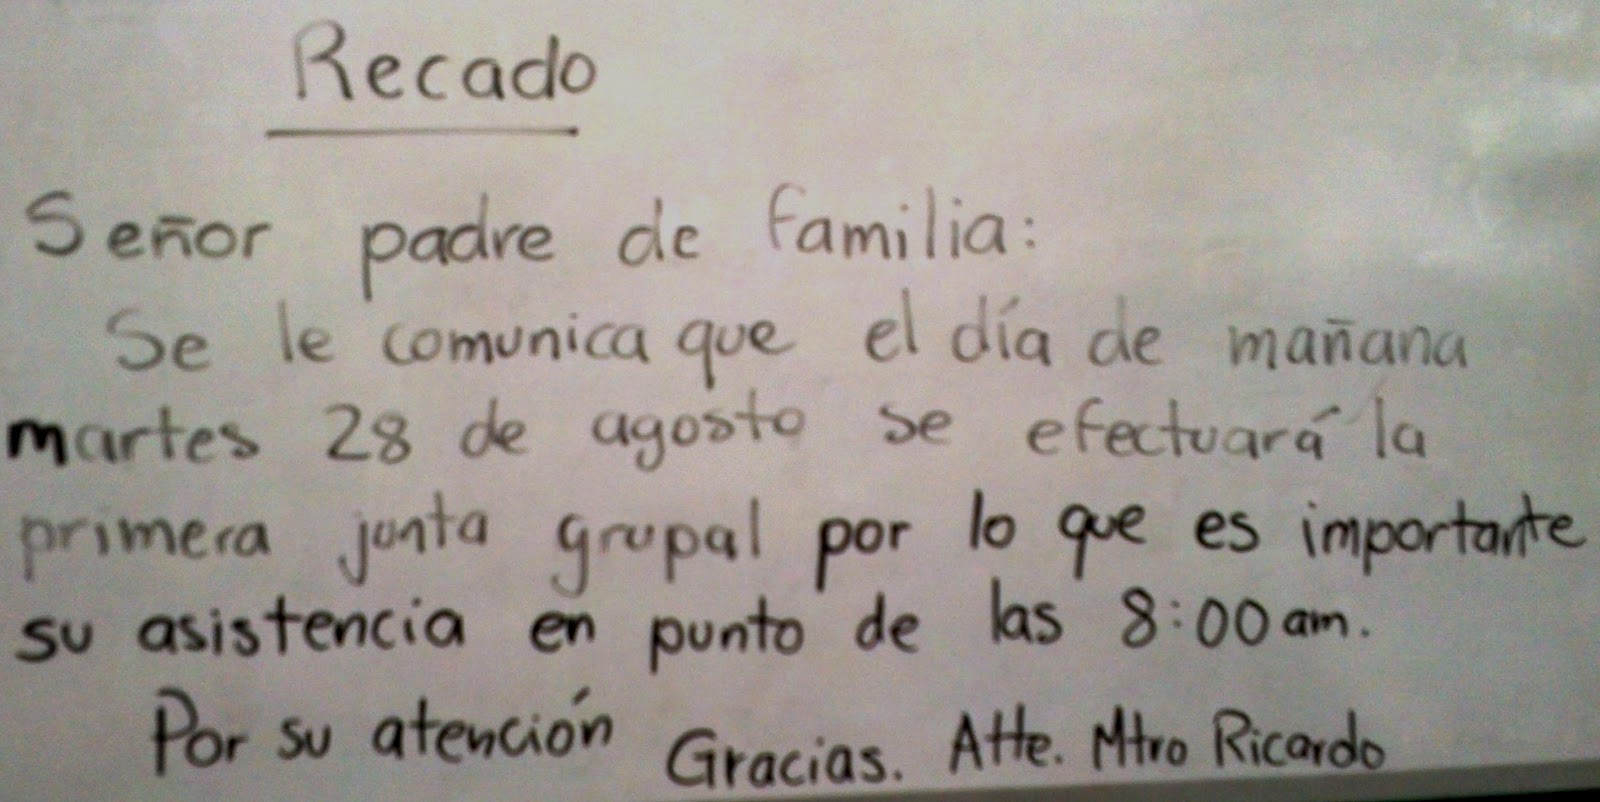 Recado
Señor padre de familia:
Se le comunica que el día de mañana
martes 28 de agosto se efectuará la
primera junta grupal por lo que es importante
su asistencia en punto de las 8:00 am.
Por su atención Gracias. Atte. Mtro Ricardo